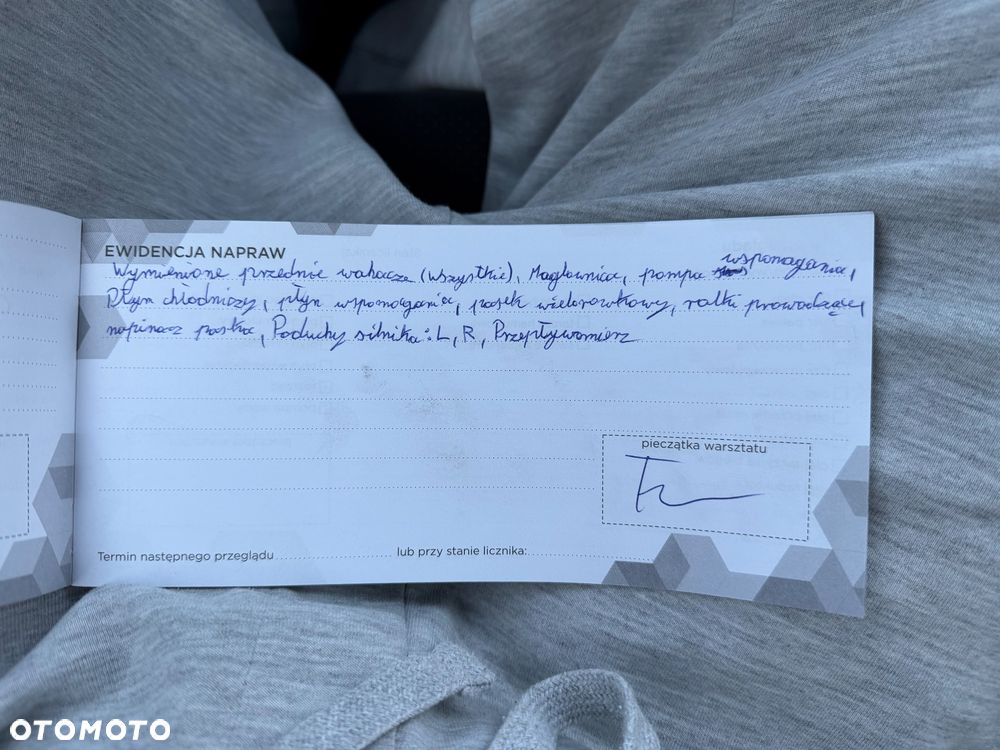 EWIDENCJA NAPRAW
Wymienione przednie wahacze (wszystkie), Maglownica, pompa wspomagania,
Płyn chłodniczy, płyn wspomagania, pasek wielorowkowy, rolki prowadzące,
napinacz paska, Poduchy silnika: L, R, Przepływomierz
pieczątka warsztatu
Termin następnego przeglądu lub przy stanie licznika:
OTOMOTO